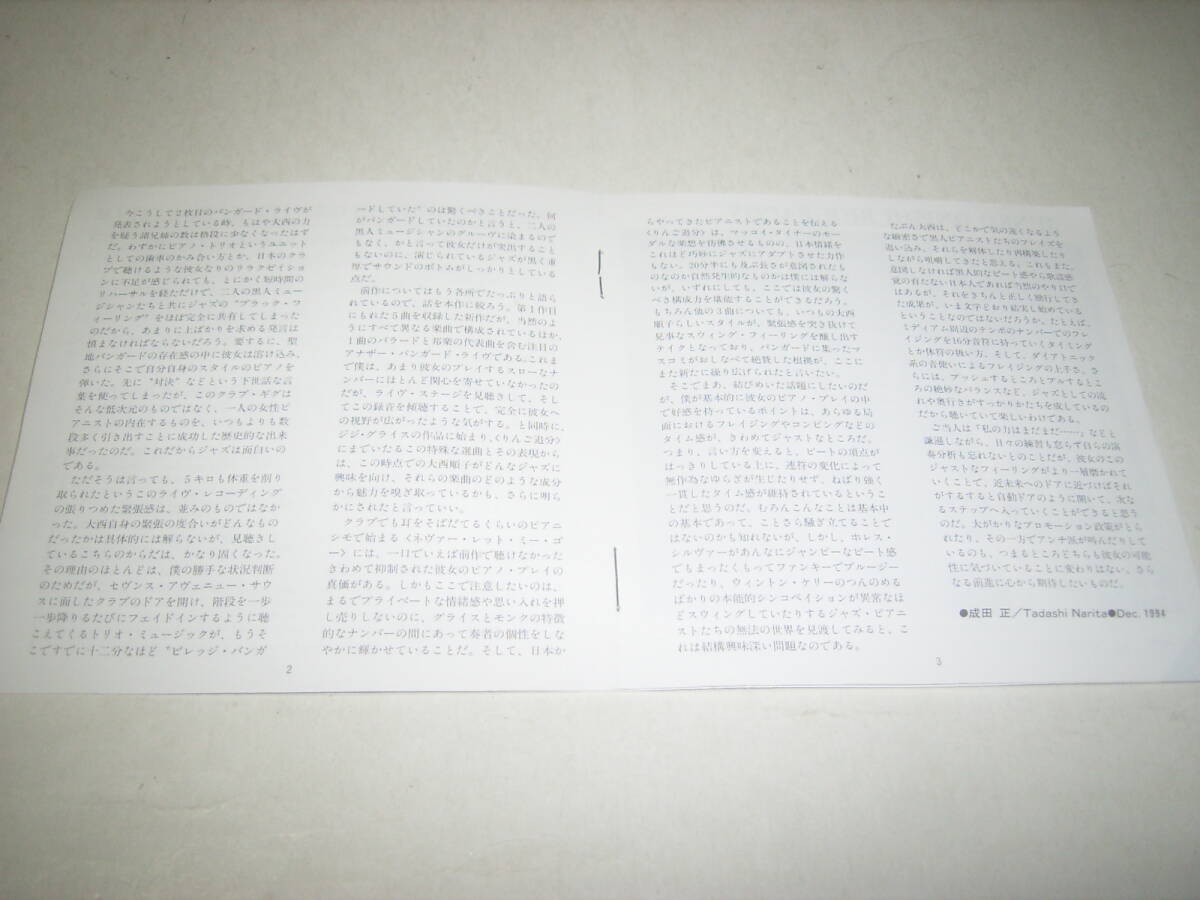 今こうして2枚目のバンガード・ライヴが
発表されようとしている時、もはや大西の力
を疑う諸兄姉の数は格段に少なくなったはず
だ。わずかにピアノ・トリオというユニット
としての歯車のかみ合い方とか、日本のクラ
ブで聴けるような彼女なりのリラクゼイショ
ンに不足が感じられても、とにかく短時間の
リハーサルを経ただけで、二人の黒人ミュー
ジシャンたちと共にジャズの“ブラック・フ
ィーリング”をほぼ完全に共有してしまった
のだから、あまりに上ばかりを求める発言は
慎まなければならないだろう。要するに、聖
地バンガードの存在感の中に彼女は溶け込み、
さらにそこで自分自身のスタイルのピアノを
弾いた。先に“対決”などという下世話な言
葉を使ってしまったが、このクラブ・ギグは
そんな低次元のものではなく、一人の女性ピ
アニストの内在するものを、いつもよりも数
段多く引き出すことに成功した歴史的な出来
事だったのだ。これだからジャズは面白いの
である。
ただそうは言っても、5キロも体重を削り
取られたというこのライヴ・レコーディング
の張りつめた緊張感は、並みのものではなか
った。大西自身の緊張の度合いがどんなもの
だったかは具体的には解らないが、見聴きし
ているこちらのからだは、かなり固くなった。
その理由のほとんどは、僕の勝手な状況判断
のためだが、セヴンス・アヴェニュー・サウ
スに面したクラブのドアを開け、階段を一歩
一歩降りるたびにフェイドインするように聴
こえてくるトリオ・ミュージックが、もうそ
こですでに十二分なほど“ビレッジ・バンガ
ードしていた”のは驚くべきことだった。何
がバンガードしていたのかと言うと、二人の
黒人ミュージシャンのグルーヴに染まるので
もなく、かと言って彼女だけが突出すること
もないのに、演じられているジャズが黒く重
厚でサウンドのボトムがしっかりとしている
点だ。
前作についてはもう各所でたっぷりと語ら
れているので、話を本作に絞ろう。第1作目
にもれた5曲を収録した新作だが、当然のよ
うにすべて異なる楽曲で構成されているほか、
1曲のバラードと邦楽の代表曲を含む注目の
アナザー・バンガード・ライヴである。これま
で僕は、あまり彼女のプレイするスローなナ
ンバーにほとんど関心を寄せていなかったの
だが、ライヴ・ステージを見聴きして、そし
てこの録音を傾聴することで、完全に彼女へ
の視野が広がったような気がする。と同時に、
ジジ・グライスの作品に始まり、〈りんご追分〉
にまでいたるこの特殊な選曲とその表現から
は、この時点での大西順子がどんなジャズに
興味を向け、それらの楽曲のどのような成分
から魅力を嗅ぎ取っているかも、さらに明ら
かにされたと言っていい。
クラブでも耳をそばだてるくらいのピアニ
シモで始まる〈ネヴァー・レット・ミー・ゴ
ー〉には、一口でいえば前作で聴けなかった
きわめて抑制された彼女のピアノ・プレイの
真価がある。しかもここで注意したいのは、
まるでプライベートな情緒感や思い入れを押
し売りしないのに、グライスとモンクの特徴
的なナンバーの間にあって奏者の個性をしな
やかに輝かせていることだ。そして、日本か
2
らやってきたピアニストであることを伝える
〈りんご追分〉は、マッコイ・タイナーのモー
ダルな楽想を彷彿させるものの、日本情緒を
これほど巧妙にジャズにアダプトさせた力作
もない。20分半にも及ぶ長さが意図されたも
のなのか自然発生的なものかは僕には解らな
いが、いずれにしても、ここでは彼女の驚く
べき構成力を堪能することができるだろう。
もちろん他の3曲についても、いつもの大西
順子らしいスタイルが、緊張感を突き抜けて
見事なスウィング・フィーリングを醸し出す
テイクとなっており、バンガードに集ったマ
スコミがおしなべて絶賛した根拠が、ここに
また新たに繰り広げられたと言いたい。
そこでまあ、結びめいた話題にしたいのだ
が、僕が基本的に彼女のピアノ・プレイの中
で好感を持っているポイントは、あらゆる局
面におけるフレイジングやコンピングなどの
タイム感が、きわめてジャストなところだ。
つまり、言い方を変えると、ビートの頂点が
はっきりしている上に、連符の変化によって
無作為なゆらぎが生じたりせず、ねばり強く
一貫したタイム感が維持されているというこ
とだと思うのだ。むろんこんなことは基本中
の基本であって、ことさら騒ぎ立てることで
はないのかも知れないが、しかし、ホレス・
シルヴァーがあんなにジャンピーなビート感
でもまったくもってファンキーでブルージー
だったり、ウィントン・ケリーのつんのめる
ばかりの本能的シンコペイションが異常なほ
どスウィングしていたりするジャズ・ピアニ
ストたちの無法の世界を見渡してみると、こ
れは結構興味深い問題なのである。
たぶん大西は、どこかで気の遠くなるよう
な緻密さで黒人ピアニストたちのフレイズを
追い込み、それらを解体したり再構築したり
しながら咀嚼してきたと思える。これもまた、
意図しなければ黒人的なビート感やら歌謡感
覚の育たない日本人であれば当然のやり口で
はあるが、それをきちんと正しく独行してき
た成果が、いま文字どおり結実し始めている
ということなのではないだろうか。たとえば、
ミディアム周辺のテンポのナンバーでのフレ
イジングを16分音符に持っていくタイミング
とか休符の扱い方、そして、ダイアトニック
系の音使いによるフレイジングの上手さ、さ
らには、プッシュするところとプルするとこ
ろの絶妙なバランスなど、ジャズとしての流
れや奥行きがすっかりかたちを成しているの
だから聴いていて楽しいわけである。
ご当人は「私の力はまだまだ……」などと
謙遜しながら、日々の練習も怠らず自らの演
奏分析も忘れないとのことだが、彼女のこの
ジャストなフィーリングがより一層磨かれて
いくことで、近未来へのドアに近づけばそれ
がするすると自動ドアのように開いて、次な
るステップへ入っていくことができると思う
のだ。大がかりなプロモーション政策がとら
れたり、その一方でアンチ派が叫んだりして
いるのも、つまるところどちらも彼女の可能
性に気づいていることに変わりはない。さら
なる前進に心から期待したいものだ。
●成田 正／Tadashi Narita●Dec. 1994
3